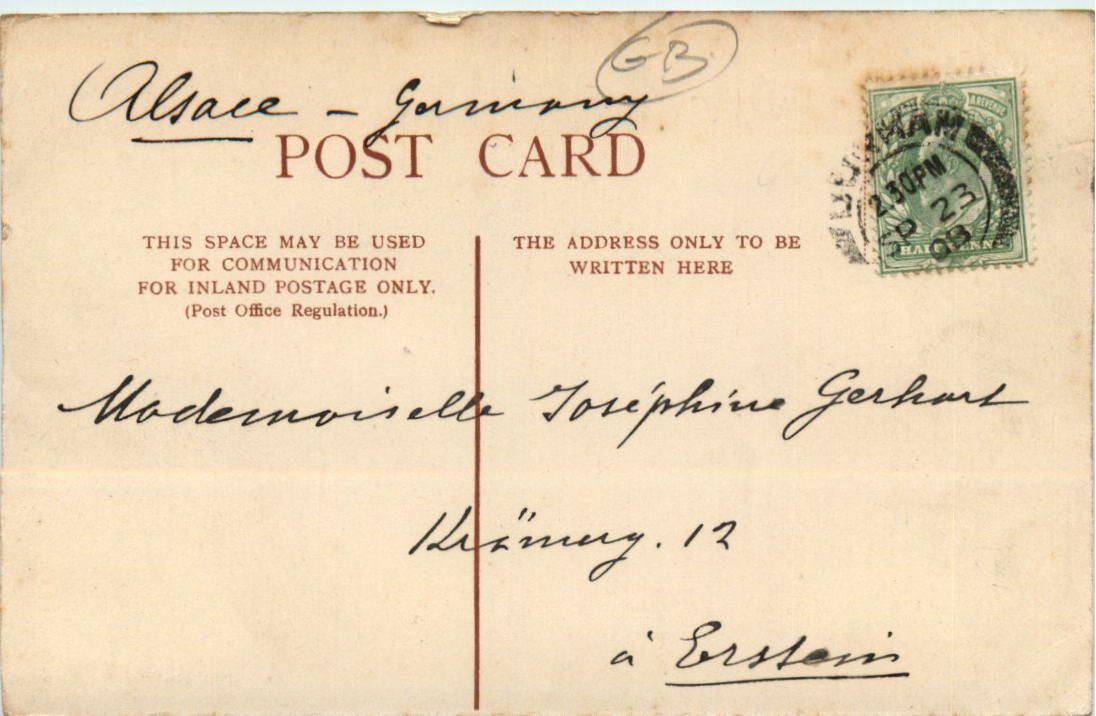 GB.
Alsace – Germany
POST CARD
DURHAM
2.30PM
SP 23
08
REVENUE
HALFPENNY
THIS SPACE MAY BE USED
FOR COMMUNICATION
FOR INLAND POSTAGE ONLY.
(Post Office Regulation.)
THE ADDRESS ONLY TO BE
WRITTEN HERE
Mademoiselle Joséphine Gerhart
Krämerg. 12
à Erstein